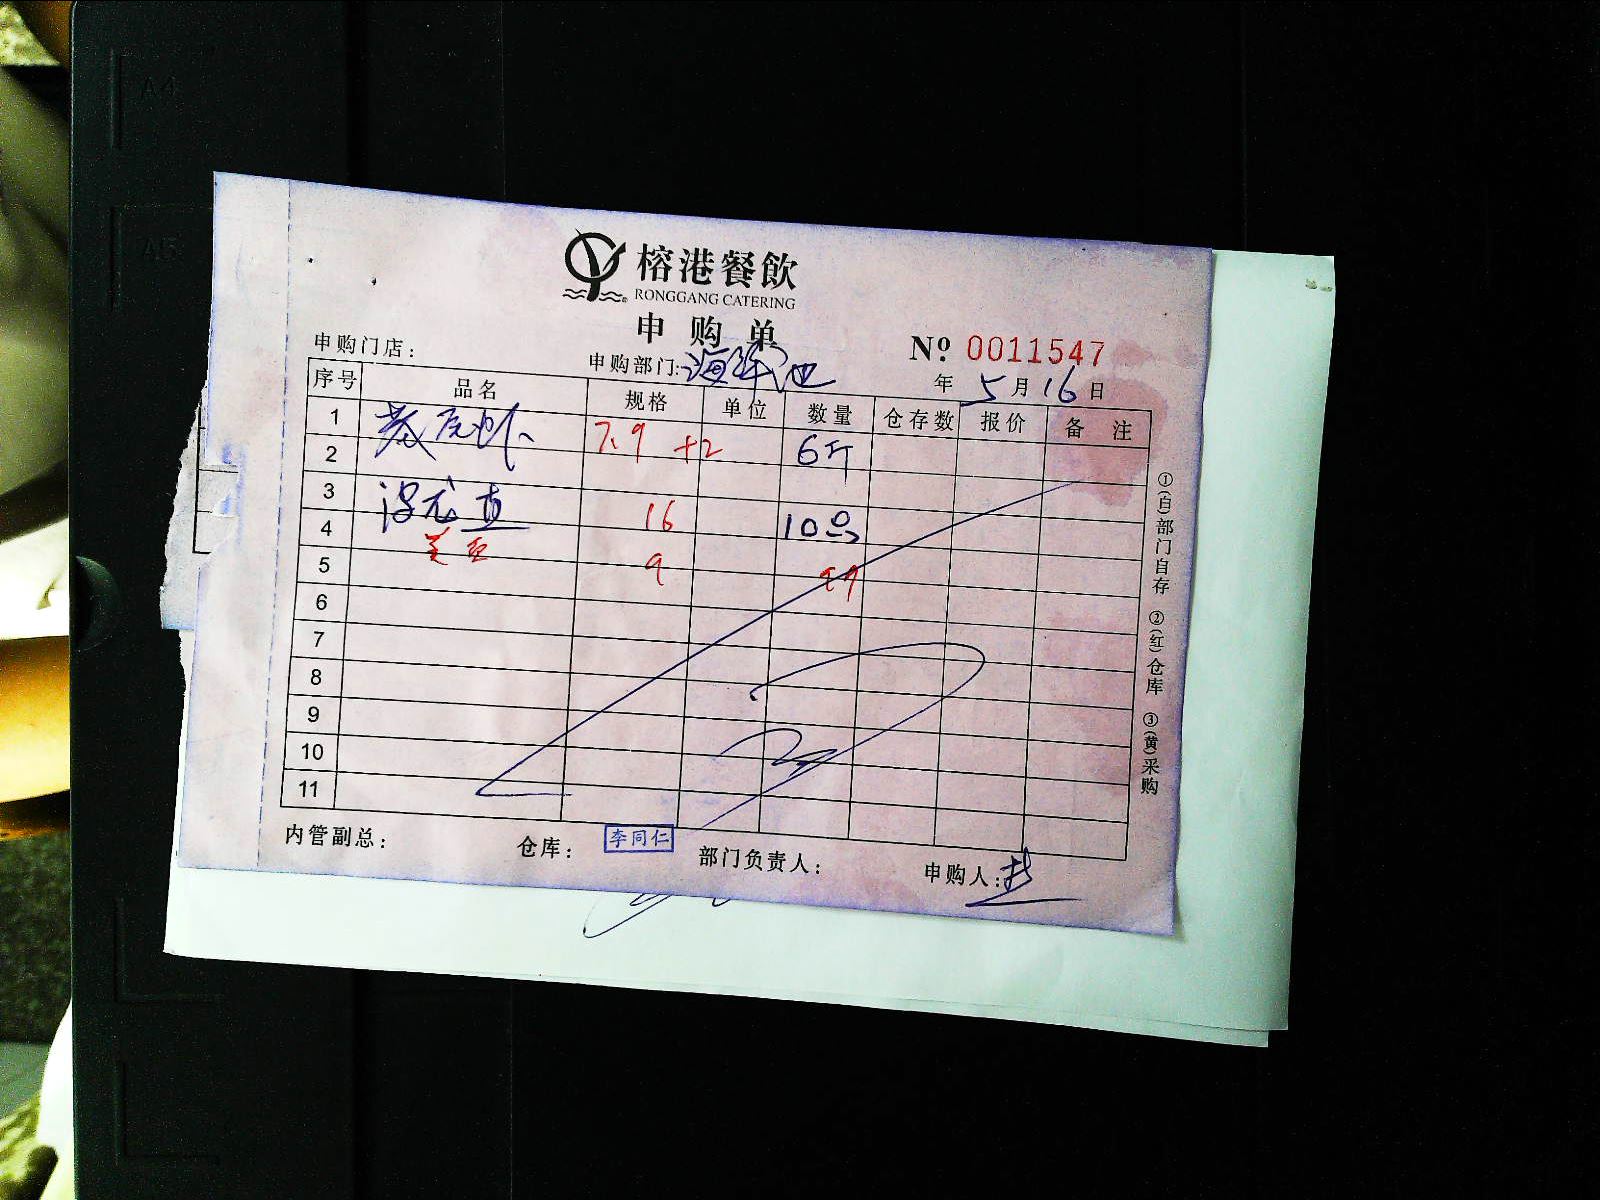 A4
A5
榕港餐飲
RONGGANG CATERING
申购单
申购门店：
申购部门：海鲜池
No 0011547
年 5 月 16 日
序号 品名 规格 单位 数量 仓存数 报价 备注
1 老虎虾 7.9 +2 6斤
2
3 16 10只
4
5 9
6
7
8
9
10
11
①(白)部门自存 ②(红)仓库 ③(黄)采购
内管副总：
仓库： 李同仁
部门负责人：
申购人：